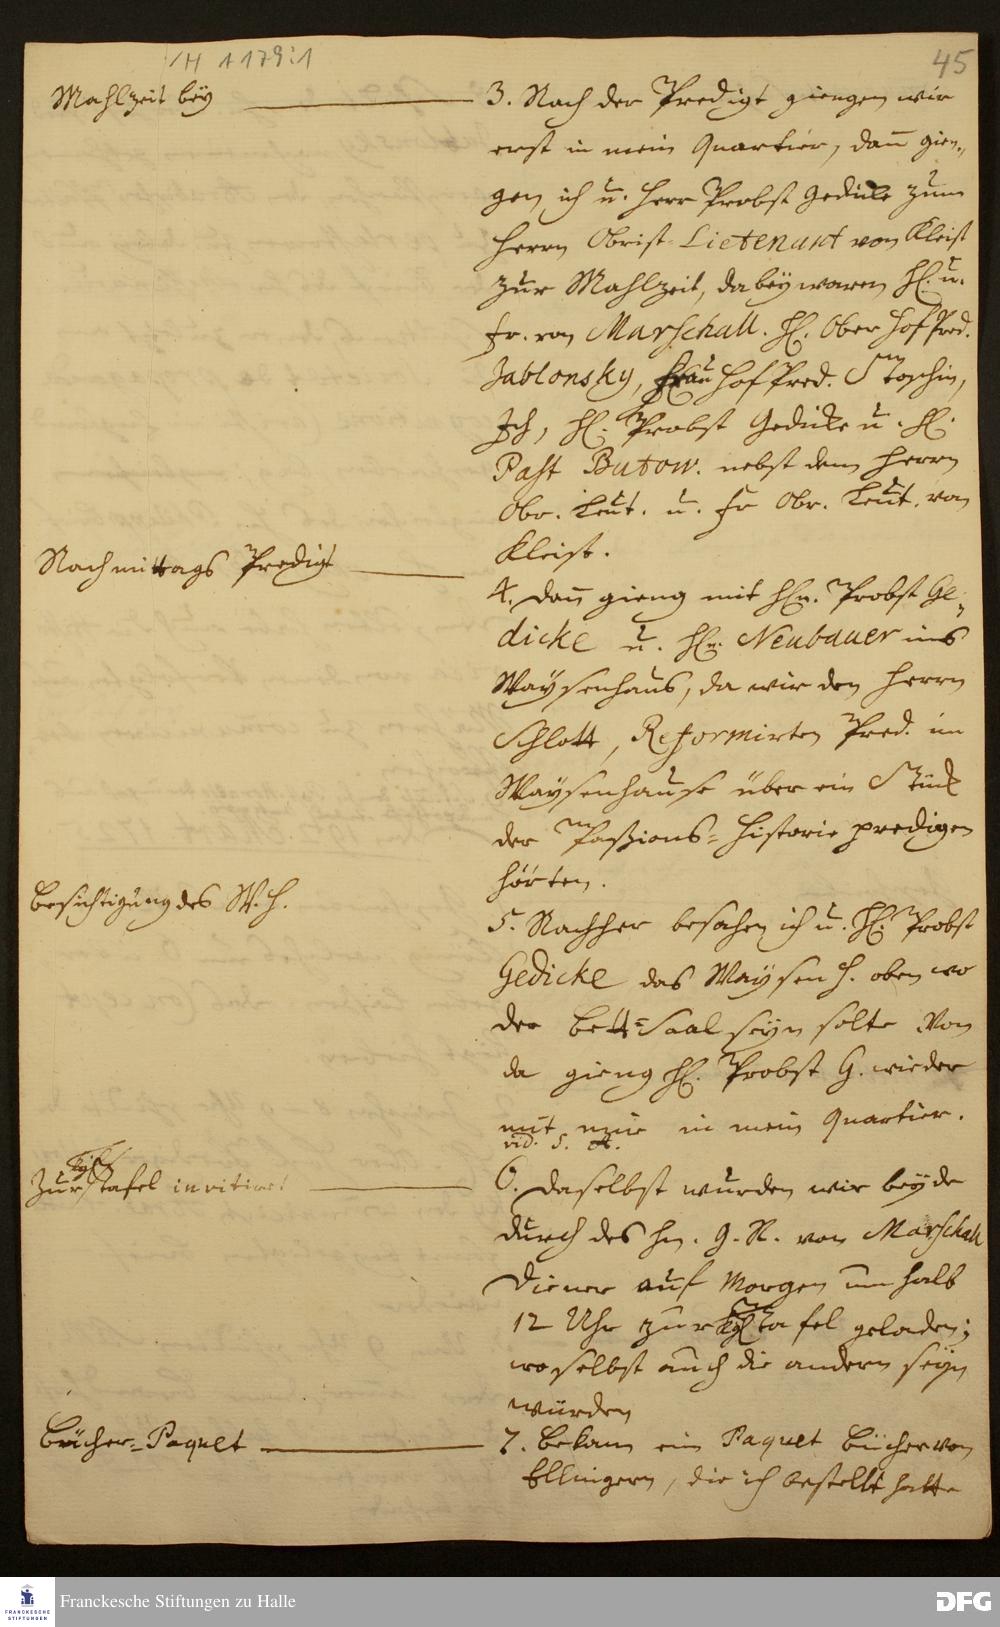 H 1179:1
45
Mahlzeit bey
3. Nach der Predigt giengen wir
erst in mein Quartier, dann gien-
gen ich u. Herr Probst Gedicke zum
Herrn Obrist-Lietenant von Kleist
zur Mahlzeit, dabey waren H. u.
Fr. von Marschall. H. Ober Hof Pred.
Jablonsky, Frau Hof Pred. Stoschin,
Ich, H. Probst Gedicke u. H.
Past Butow. nebst dem Herrn
Obr. Leut. u. Fr Obr. Leut. von
Kleist.
Nachmittags Predigt
4. Dann gieng mit Hn. Probst Ge-
dicke u. Hn. Neubauer ins
Waysenhaus, da wir den Herrn
Schlott, Reformirten Pred. im
Waysenhause über ein Stück
der Passions-Historie predigen
hörten.
Besichtigung des W. H.
5. Nachher besahen ich u. H. Probst
Gedicke das Waysen H. oben wo
der Bett-Saal seyn solte Von
da gieng H. Probst G. wieder
mit mir in mein Quartier.
vid. 5. A.
Kgl
Zur Tafel invitiret
6. Daselbst wurden wir beyde
durch des Hn. G. R. von Marschall
Diener auf Morgen um halb
12 Uhr zur Kgl Tafel geladen;
woselbst auch die andern seyn
würden
Bücher-Paquet
7. Bekam ein Paquet Bücher von
Ellingern, die ich bestellt hatte
Franckesche Stiftungen zu Halle
FRANCKESCHE
STIFTUNGEN
DFG